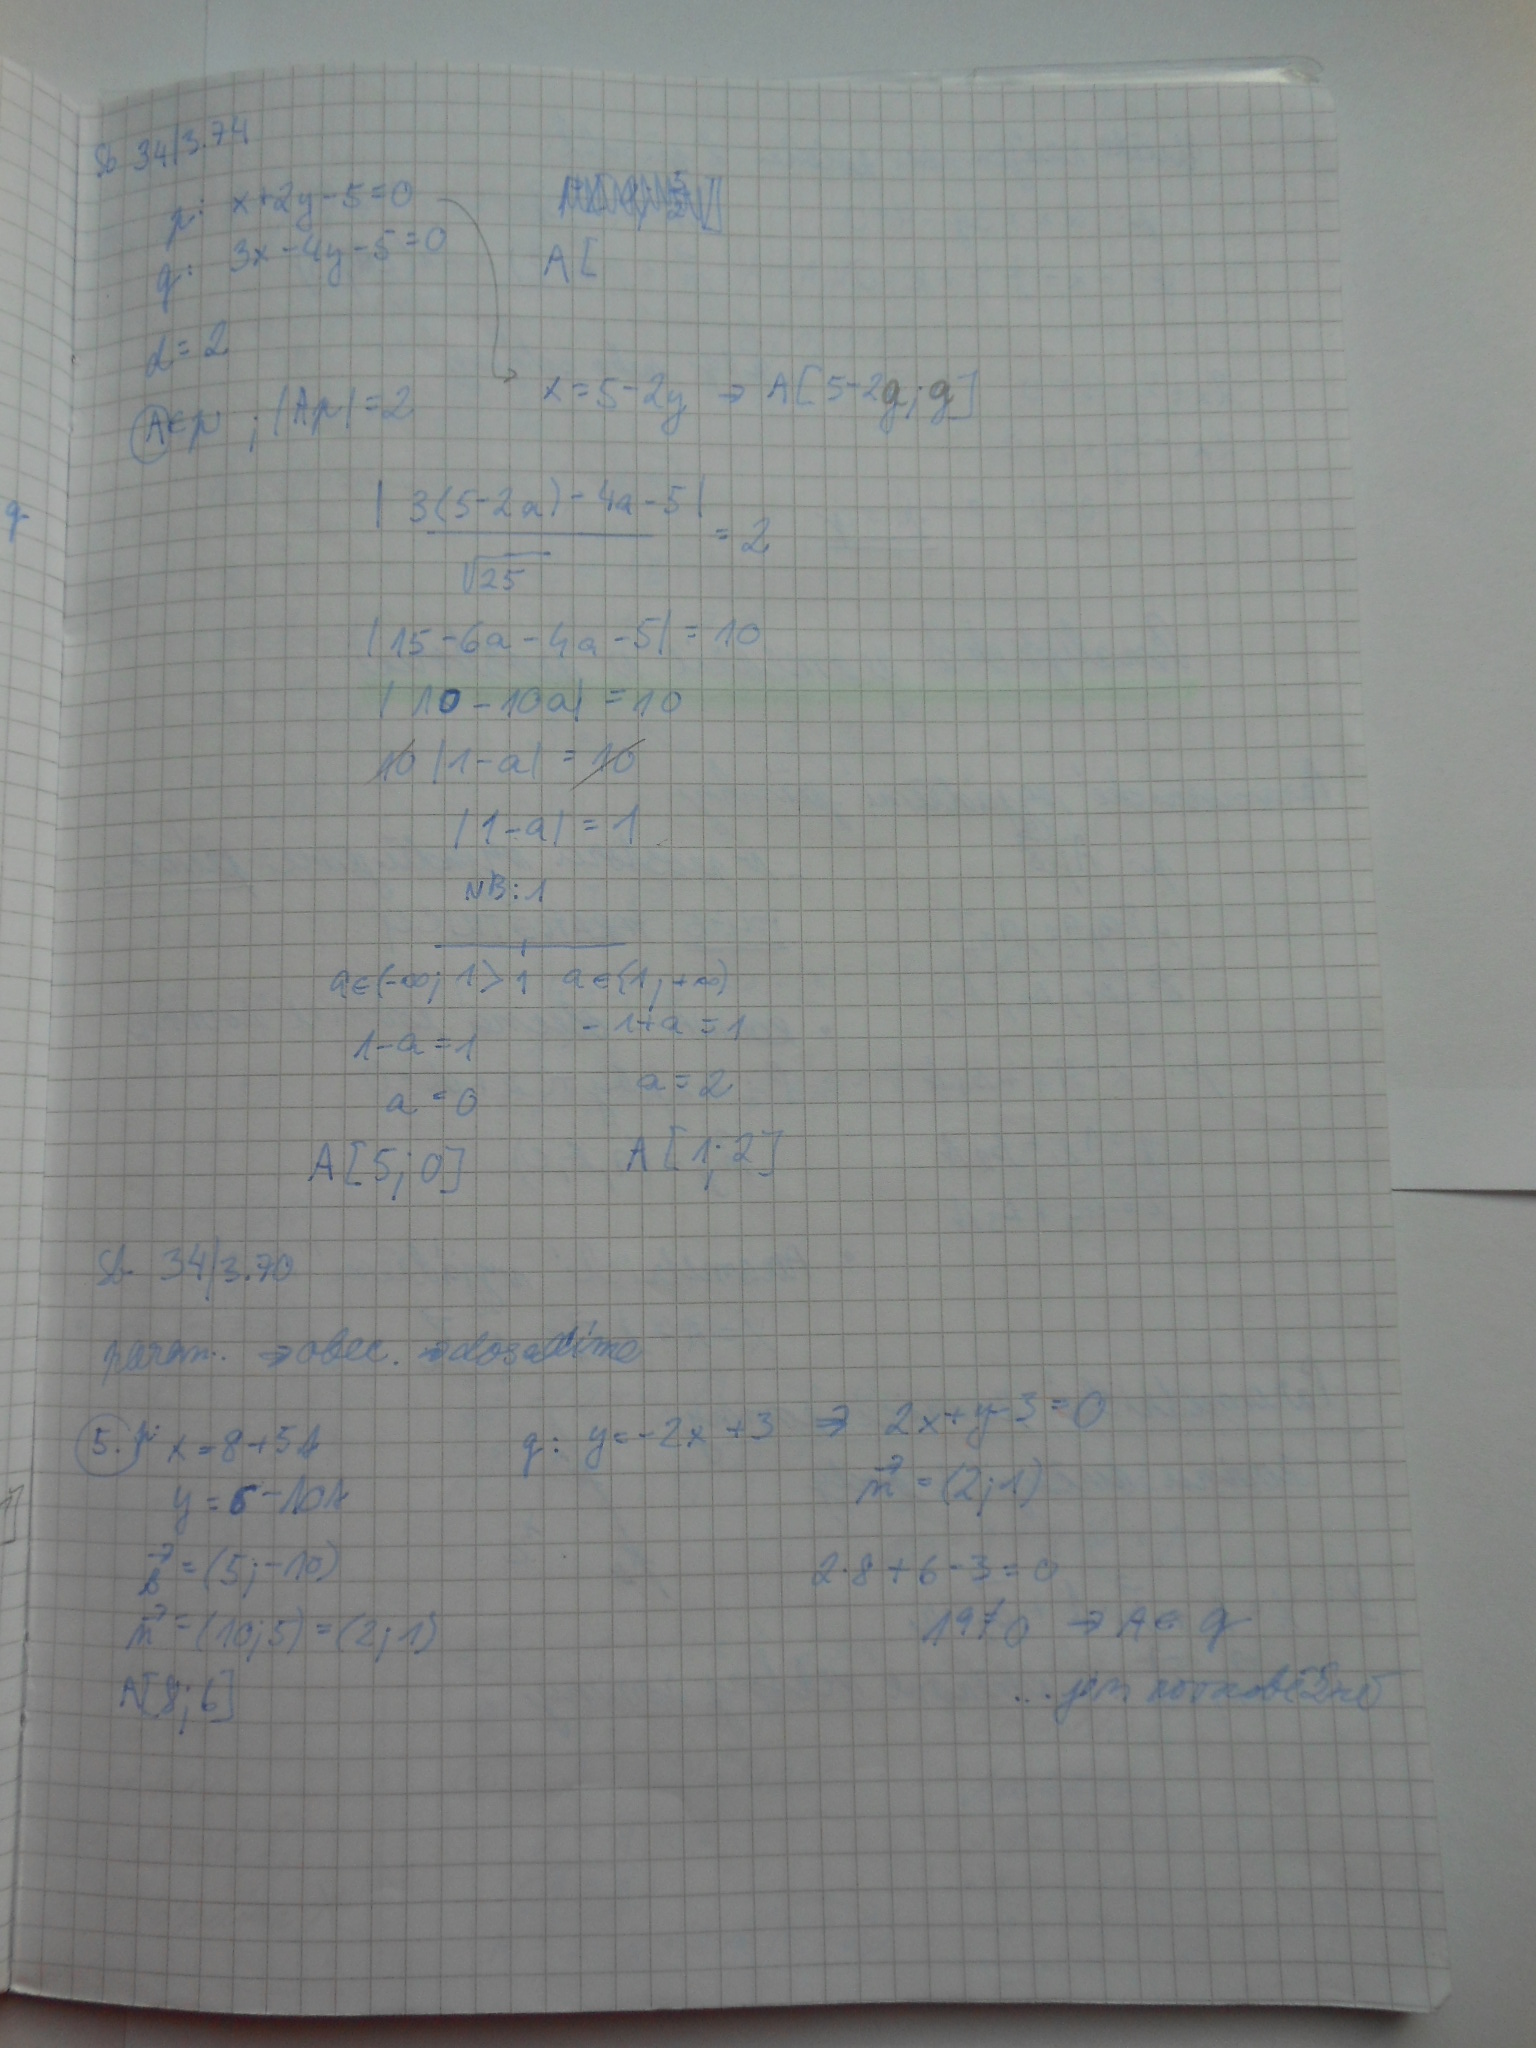 Sb 34/3.74
p: x+2y-5=0
q: 3x-4y-5=0
A[
d=2
A∈p ; |Ap|=2
x=5-2y → A[5-2y;y]
|3(5-2a)-4a-5|
= 2
√25
|15-6a-4a-5|=10
|10-10a|=10
10|1-a|=10
|1-a|=1
NB:1
a∈(-∞;1> 1 a∈(1;+∞)
1-a=1 -1+a=1
a=0 a=2
A[5;0] A[1;2]
Sb 34/3.70
param. → obec. → dosadíme
5. p: x=8+5t q: y=-2x+3 ⇒ 2x+y-3=0
y=6-10t n⃗=(2;1)
s⃗=(5;-10) 2·8+6-3=0
n⃗=(10;5)=(2;1) 19≠0 → A∈q
A[8;6] ...jsou rovnoběžné
q